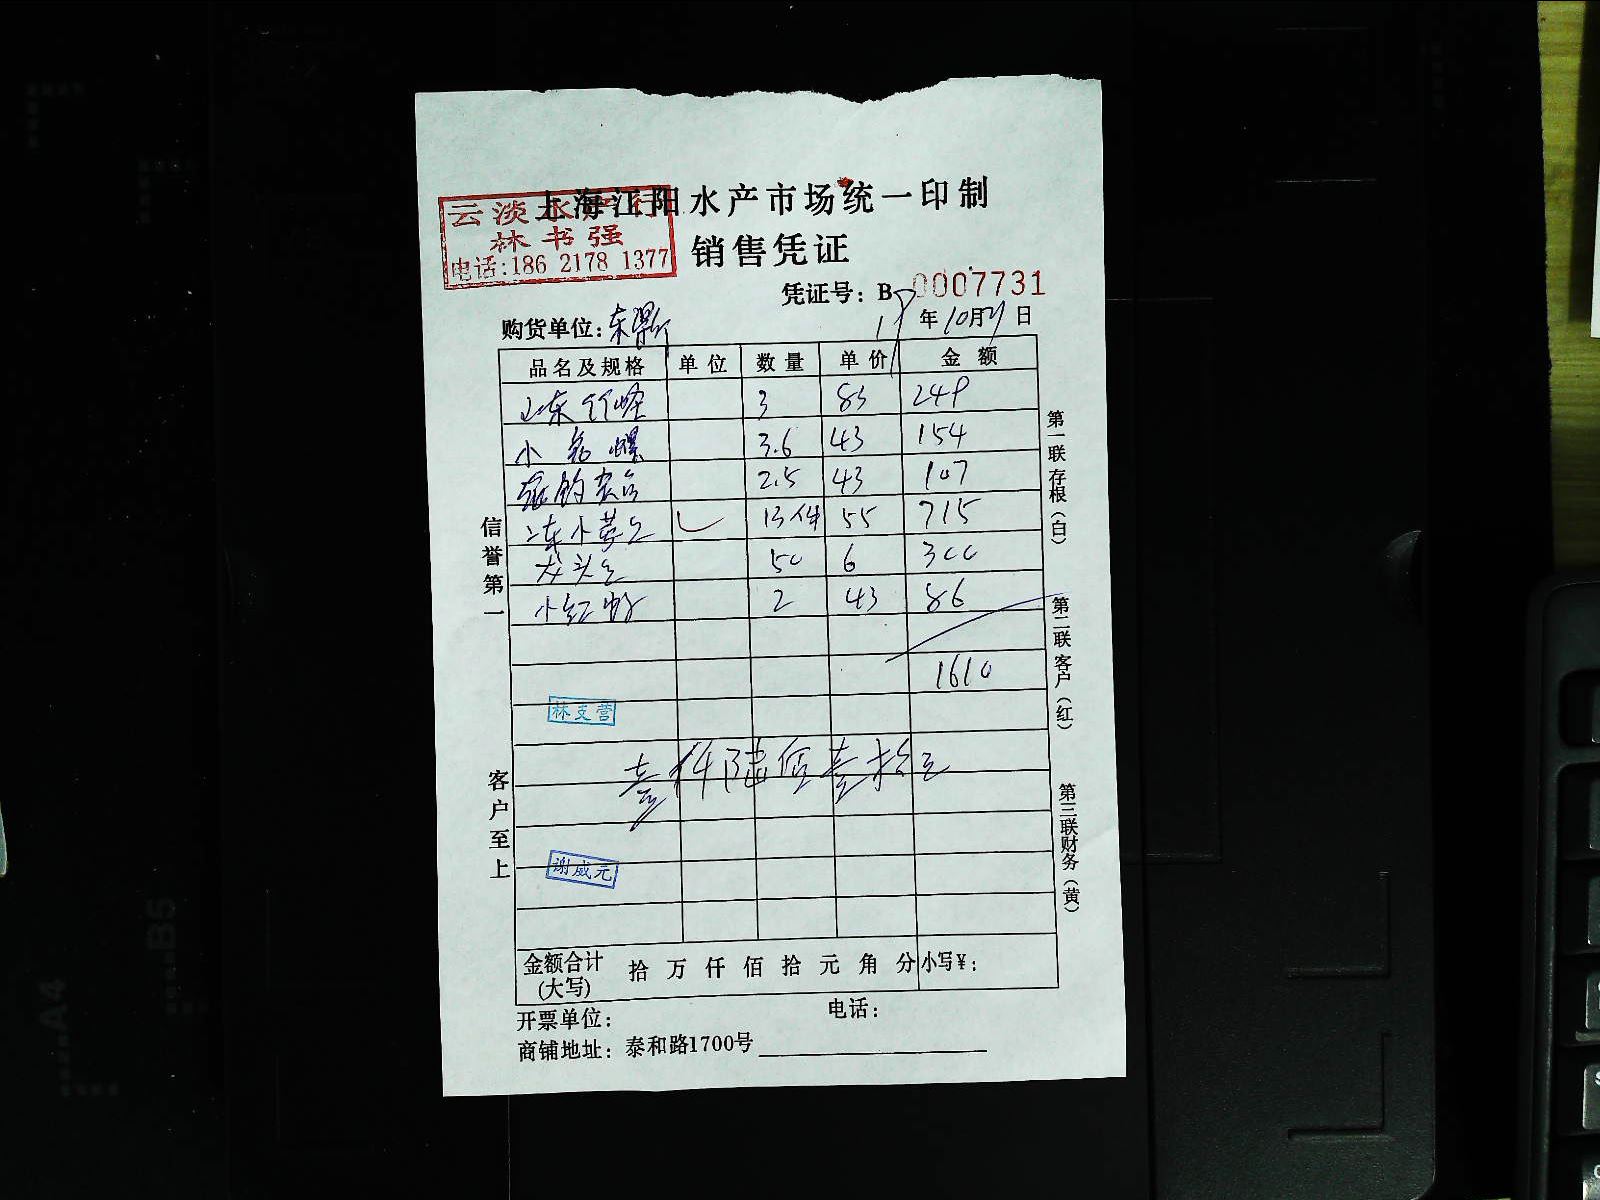 上海江阳水产市场统一印制
云淡水产行
林书强
电话:186 2178 1377
销售凭证
凭证号: B 0007731
购货单位:东
年10月 日
品名及规格 单位 数量 单价 金额
山东竹蛏 3 83 249
小 螺 3.6 43 154
2.5 43 107
冻小黄鱼 13件 55 715
龙头鱼 50 6 300
小红虾 2 43 86
1610
林支营
壹仟陆佰壹拾元
谢威元
金额合计(大写) 拾 万 仟 佰 拾 元 角 分 小写¥:
开票单位: 电话:
商铺地址: 泰和路1700号
信誉第一
客户至上
第一联存根(白)
第二联客户(红)
第三联财务(黄)
A4
B5